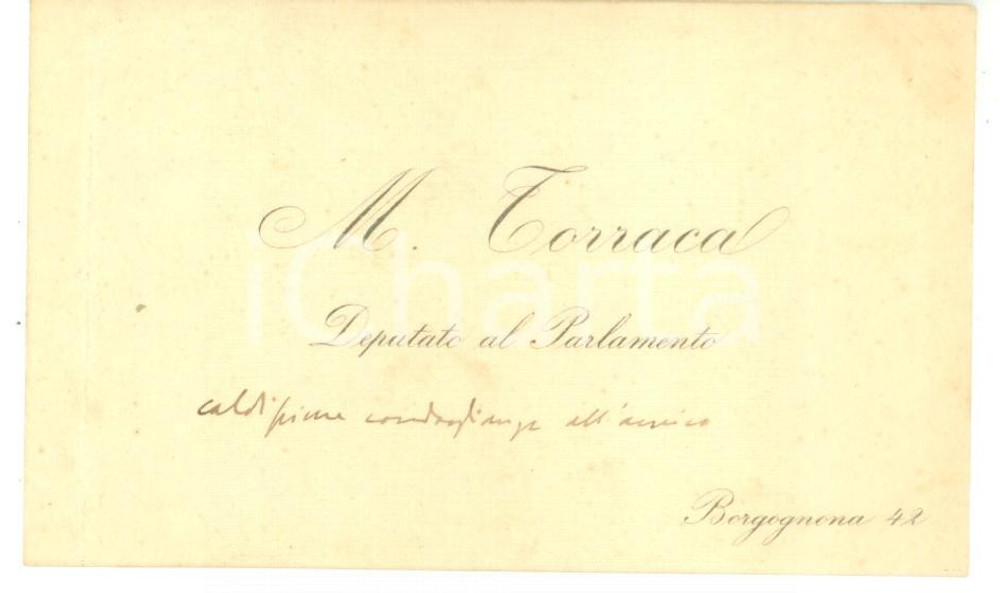 M. Torraca
iCharta
Deputato al Parlamento
caldissime all'amico
Borgognona 42